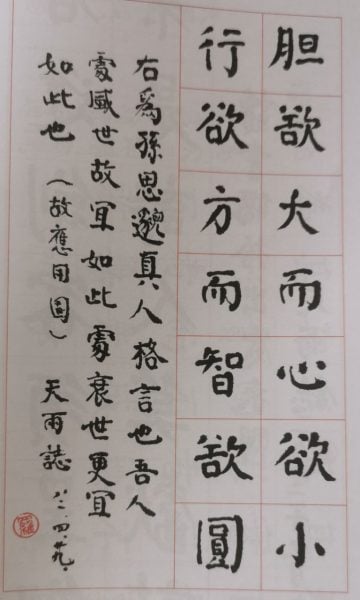 胆欲大而心欲小
行欲方而智欲圓
右爲孫思邈真人格言也吾人
處盛世故宜如此處衰世更宜
如此也（故應用固）天雨誌 八二.四.廿九.